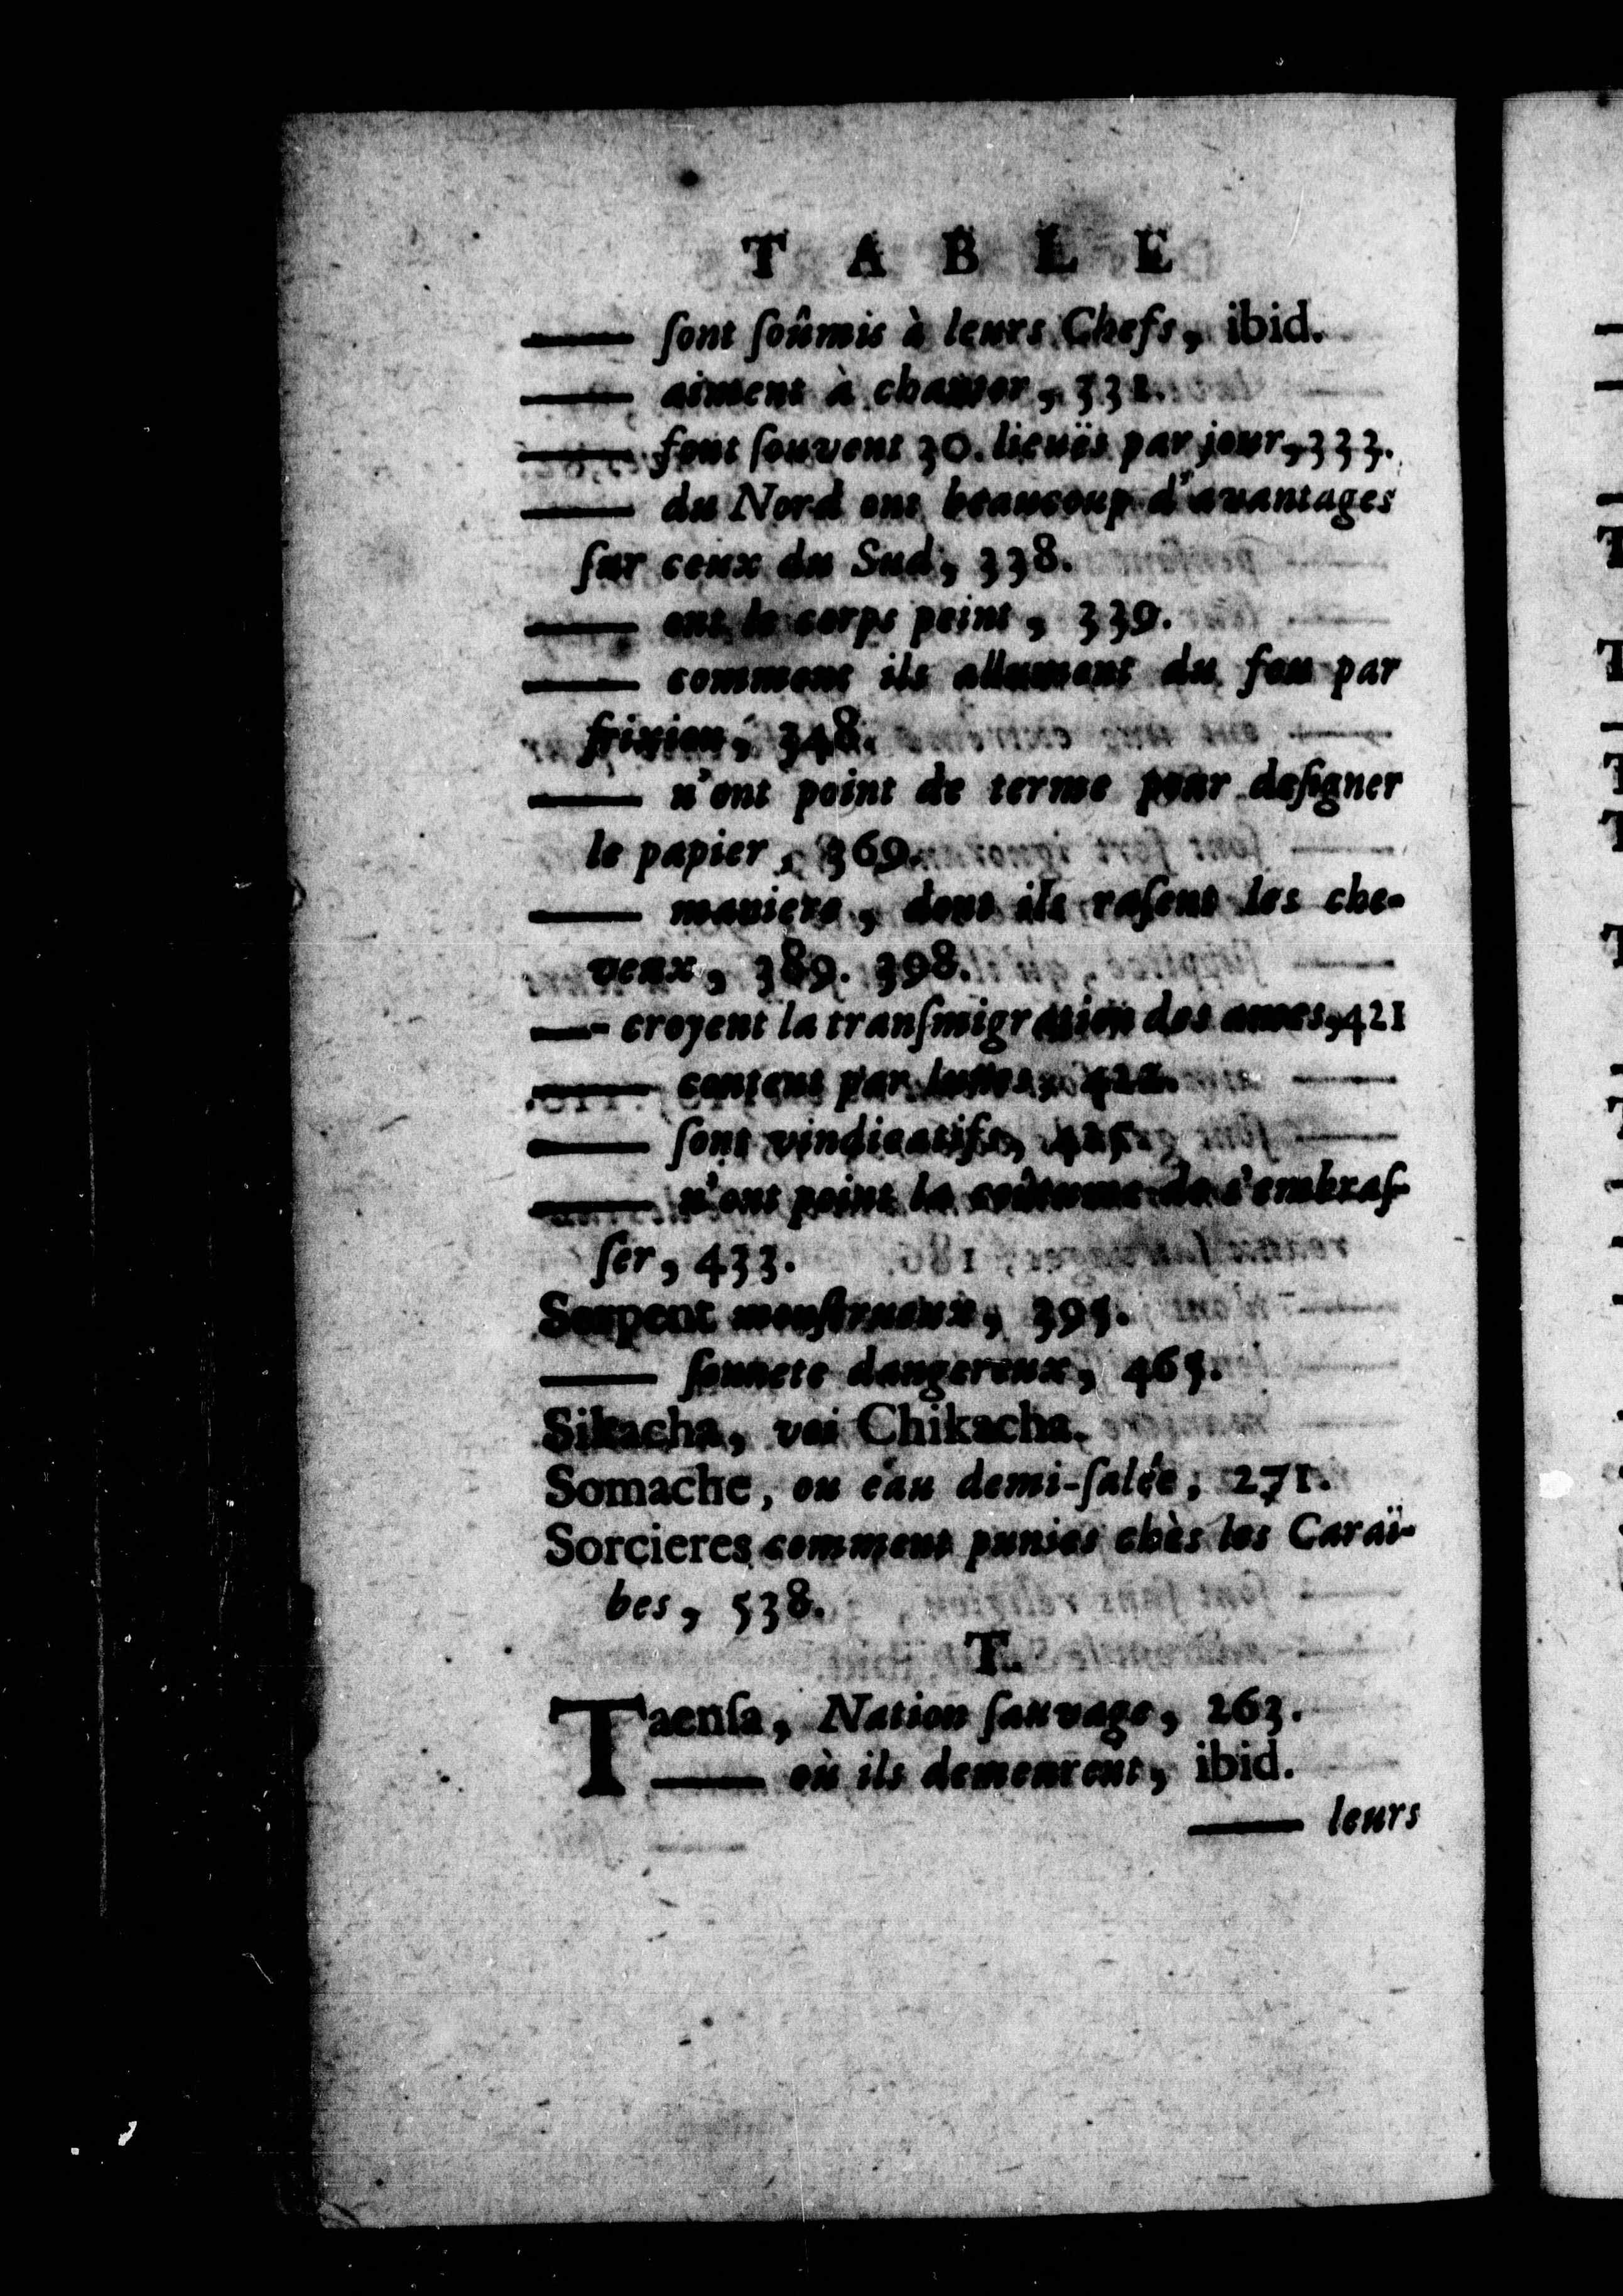 TABLE
—— ſont ſoûmis à leurs Chefs, ibid.
—— aiment à chanter, 332.
—— font ſouvent 30. lieuës par jour, 333.
—— du Nord ont beaucoup d'avantages
ſur ceux du Sud, 338.
—— ont le corps peint, 339.
—— comment ils allument du feu par
frixion, 348.
—— n'ont point de terme pour deſigner
le papier, 369.
—— maniere, dont ils raſent les che-
veux, 389. 398.
—- croyent la tranſmigration des ames, 421
—— content par lunes, 422.
—— ſont vindicatifs, 425.
—— n'ont point la coûtume de s'embraſ-
ſer, 433.
Serpent monſtrueux, 395.
—— ſonnete dangereux, 465.
Sikacha, voi Chikacha.
Somache, ou eau demi-ſalée, 271.
Sorcieres comment punies chès les Caraï-
bes, 538.
T.
Taenſa, Nation ſauvage, 263.
—— où ils demeurent, ibid.
—— leurs